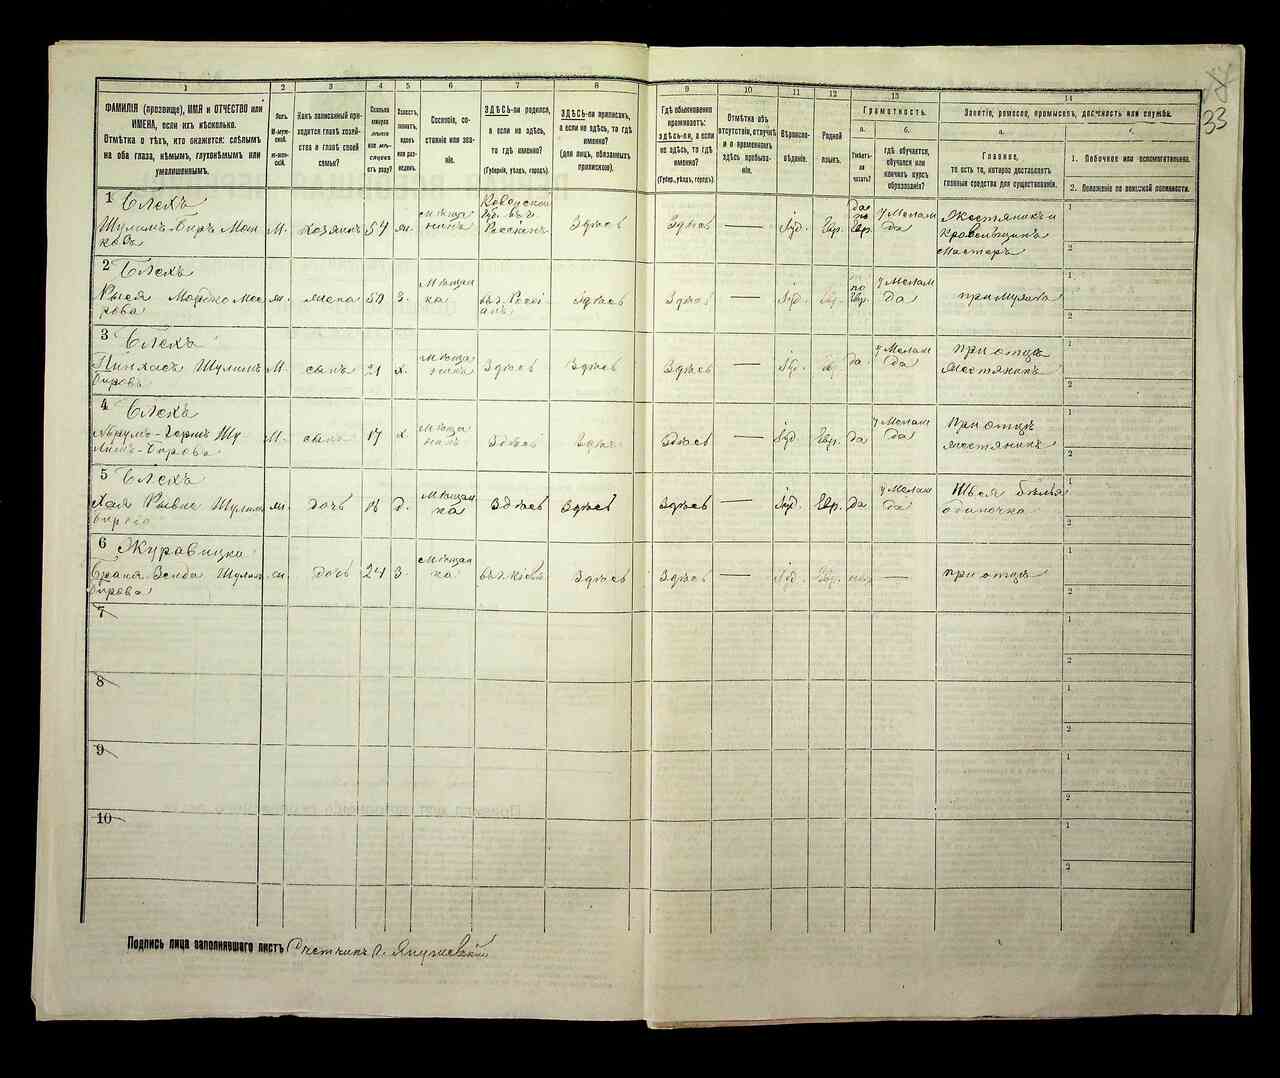 33
1 2 3 4 5 6 7 8 9 10 11 12 13 14
ФАМИЛІЯ (прозвище), ИМЯ и ОТЧЕСТВО или
ИМЕНА, если ихъ нѣсколько.
Отмѣтка о тѣхъ, кто окажется: слѣпымъ
на оба глаза, нѣмымъ, глухонѣмымъ или
умалишеннымъ.
Полъ.
М-муж-
ской.
ж-жен-
ской.
Какъ записанный при-
ходится главѣ хозяй-
ства и главѣ своей
семьи?
Сколько
минуло
лѣтъ
или мѣ-
сяцевъ
отъ роду?
Холостъ,
женатъ,
вдовъ
или раз-
веденъ.
Сословіе, со-
стояніе или зва-
ніе.
ЗДѢСЬ-ли родился,
а если не здѣсь,
то гдѣ именно?
(Губернія, уѣздъ, городъ).
ЗДѢСЬ-ли приписанъ,
а если не здѣсь, то гдѣ
именно?
(для лицъ, обязанныхъ
припискою).
Гдѣ обыкновенно
проживаетъ:
здѣсь-ли, а если
не здѣсь, то гдѣ
именно?
(Губер., уѣздъ, городъ).
Отмѣтка объ
отсутствіи, отлучкѣ
и о временномъ
здѣсь пребыва-
ніи.
Вѣроиспо-
вѣданіе.
Родной
языкъ.
Грамотность.
а.
Умѣетъ-
ли
читать?
б.
гдѣ обучается,
обучался или
кончилъ курсъ
образованія?
Занятіе, ремесло, промыселъ, должность или служба.
а.
Главное,
то есть то, которое доставляетъ
главныя средства для существованія.
1. Побочное или вспомогательное.
2. Положеніе по воинской повинности.
1 Блехъ
Шулимъ-Биръ
М. хозяинъ 54 ж. мѣща
нинъ
Ковенской
Губ. въ г.
Россіянъ
Здѣсь Здѣсь — Іуд. Евр.
да
по
Евр.
у Мелам
да
Жестяникъ и
кровельщикъ
мастеръ
1
2
2 Блехъ
ж. жена 50 З. Мѣщан
ка
въ г. Россі
анъ
Здѣсь Здѣсь — Іуд. Евр.
по
Евр.
у Мелам
да
при мужѣ
1
2
3 Блехъ
Пинхасъ Шулимъ
Бировъ
М. сынъ 21 х. Мѣща
нинъ
Здѣсь Здѣсь Здѣсь — Іуд. да
у Мелам
да
при отцѣ
жестяникъ
1
2
4 Блехъ
Шу
лимъ-Бирова
М. сынъ 17 х. Мѣща
нинъ
Здѣсь Здѣсь Здѣсь — Іуд. Евр. да
у Мелам
да
При отцѣ
жестяникъ
1
2
5 Блехъ
Хая Рывне Шулим
бирова
ж. дочь д. Мѣщан
ка
Здѣсь Здѣсь Здѣсь — Іуд. Евр. да
у Мелам
да
Швея бѣлья
одиночка
1
2
6 Журавицка
Брана Зелда Шулим
бирова
ж. дочь 24 З. Мѣщан
ка
въ г. Кіевѣ Здѣсь Здѣсь — Іуд. Евр. нѣтъ —
при отцѣ
1
2
7
1
2
8
1
2
9
1
2
10
1
2
Подпись лица заполнявшаго листъ Счетчикъ